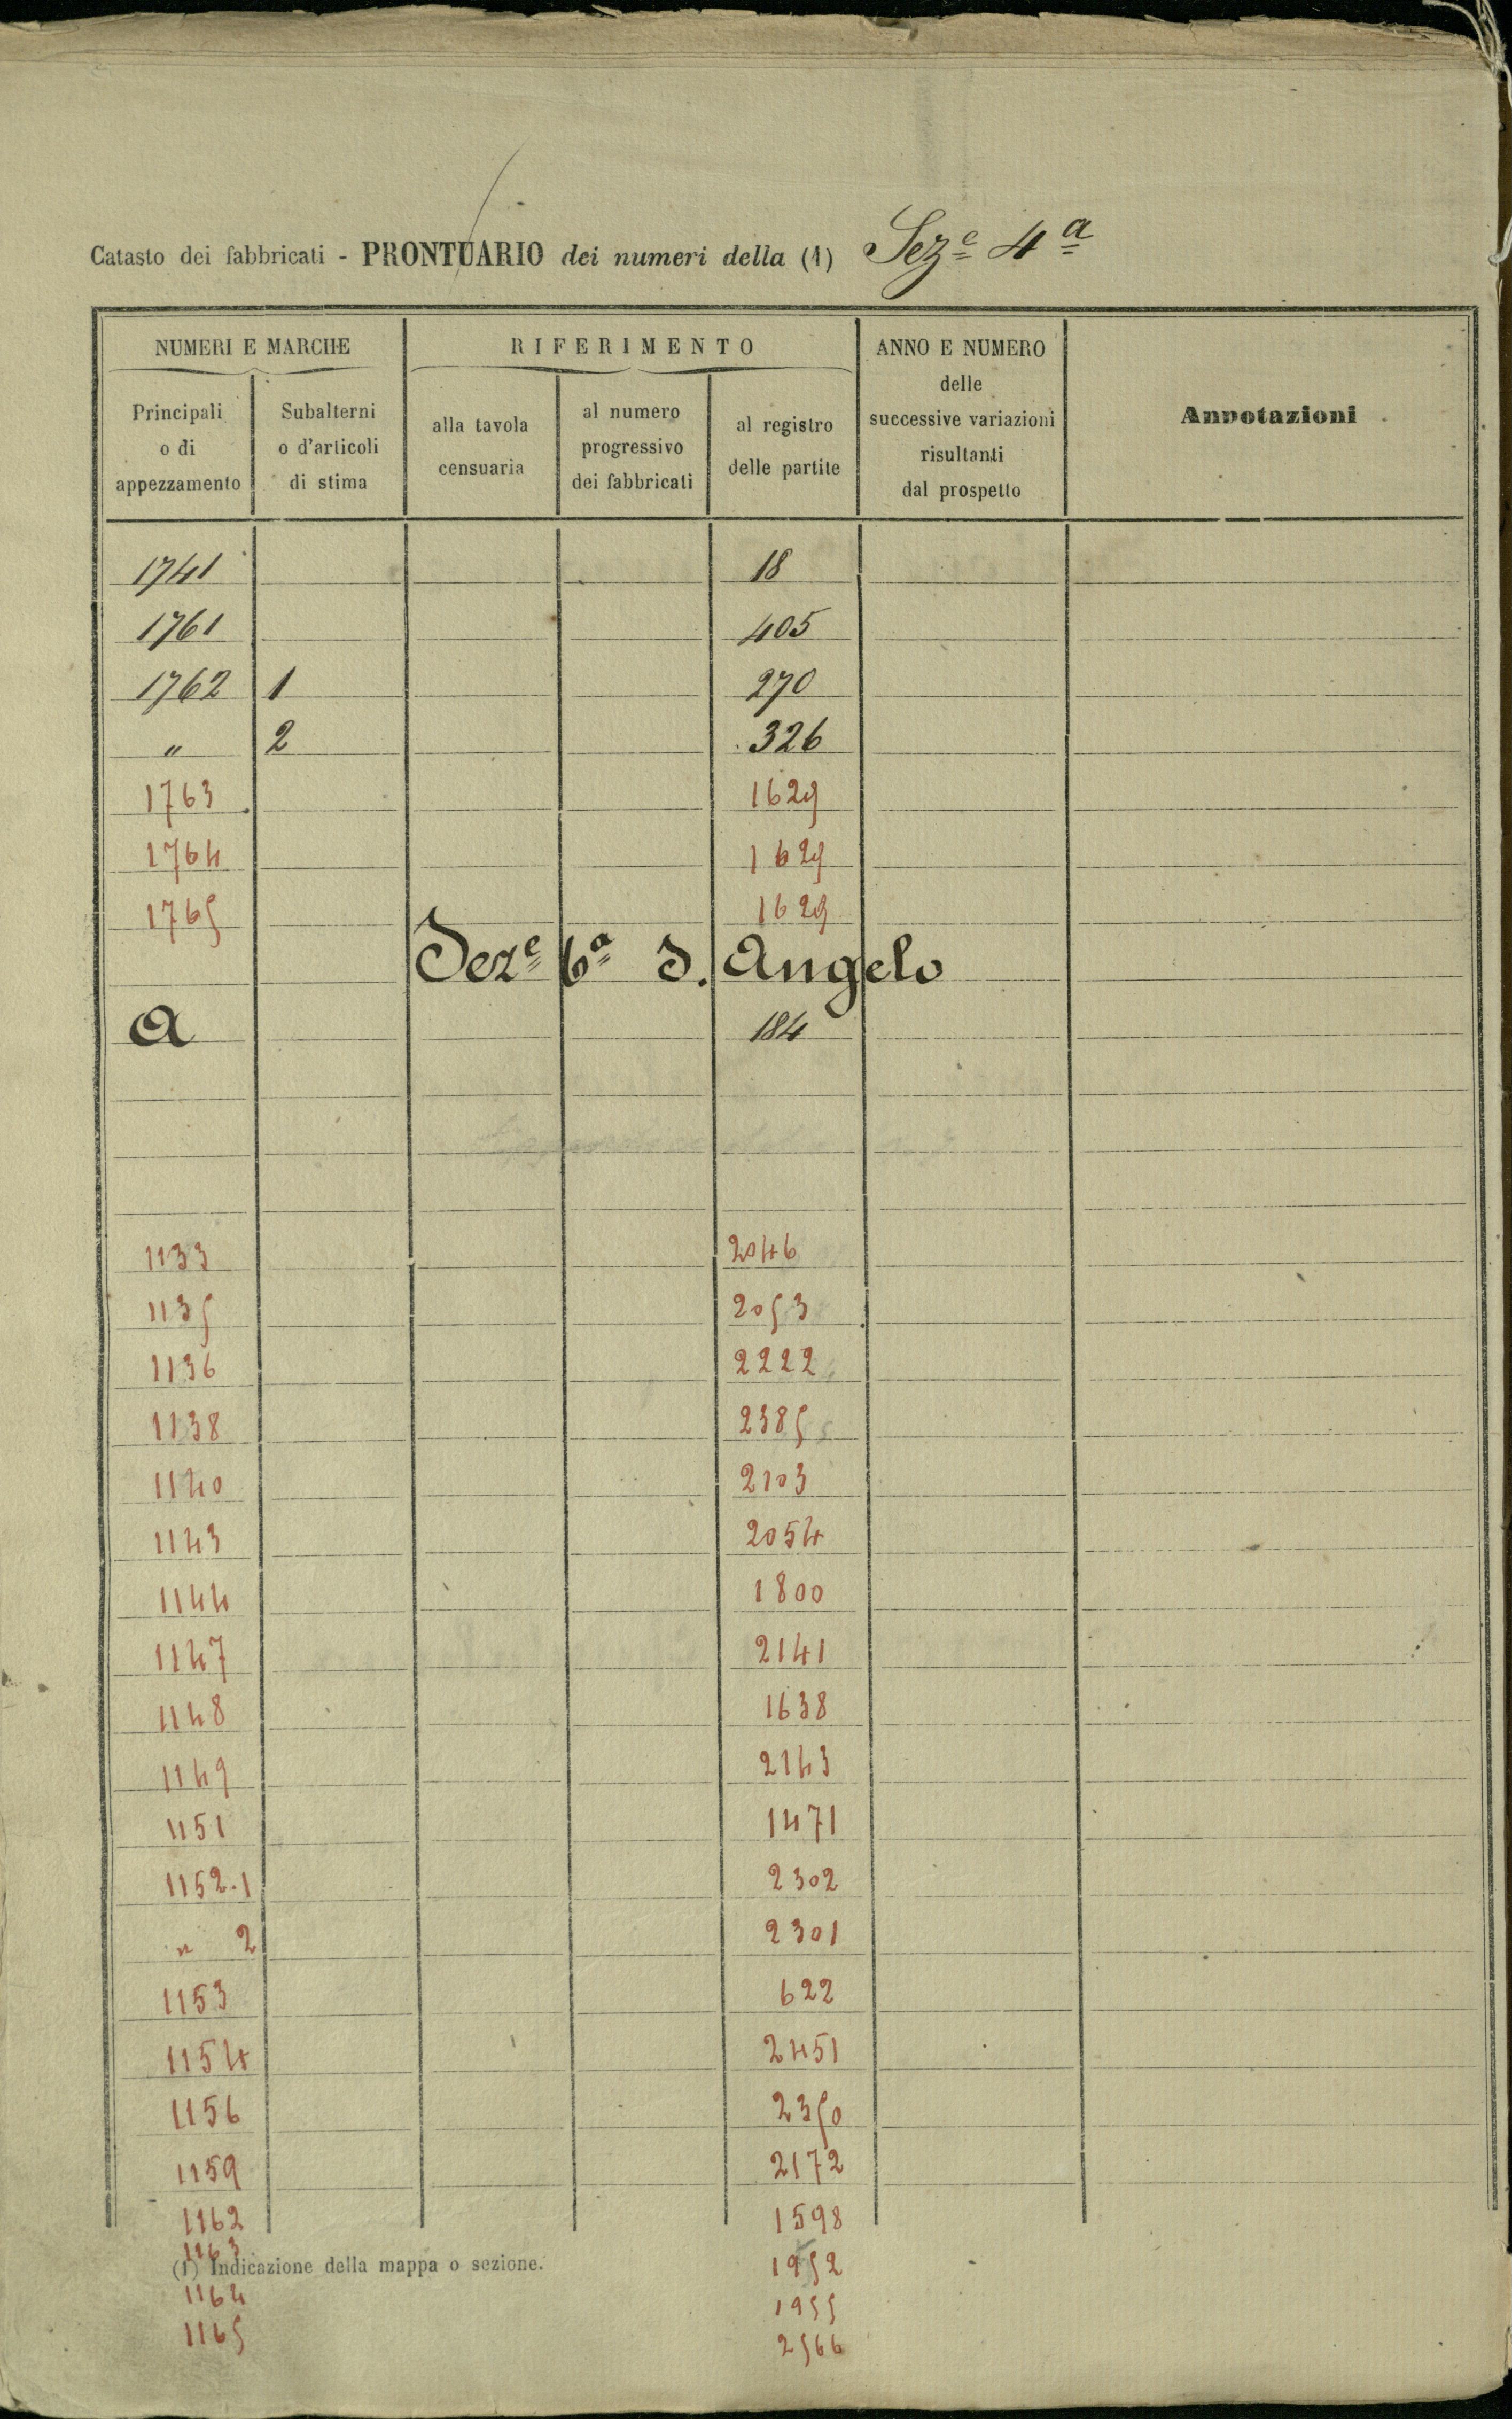 Catasto dei fabbricati - PRONTUARIO dei numeri della (1) Sez.e 4a
NUMERI E MARCHE RIFERIMENTO ANNO E NUMERO delle successive variazioni risultanti dal prospetto Annotazioni
Principali o di appezzamento Subalterni o d'articoli di stima alla tavola censuaria al numero progressivo dei fabbricati al registro delle partite
1741 18
1761 405
1762 1 270
" 2 326
1763 1629
1764 1629
1765 1629
Seze 6a S. Angelo
A 184
1133 2046
1135 2053
1136 2222
1138 2385
1140 2103
1143 2054
1144 1800
1147 2141
1148 1638
1149 2143
1151 1471
1152.1 2302
" 2 2301
1153 622
1154 2451
1156 2350
1159 2172
1162 1598
1163 1952
(1) Indicazione della mappa o sezione.
1164 1955
1165 2566